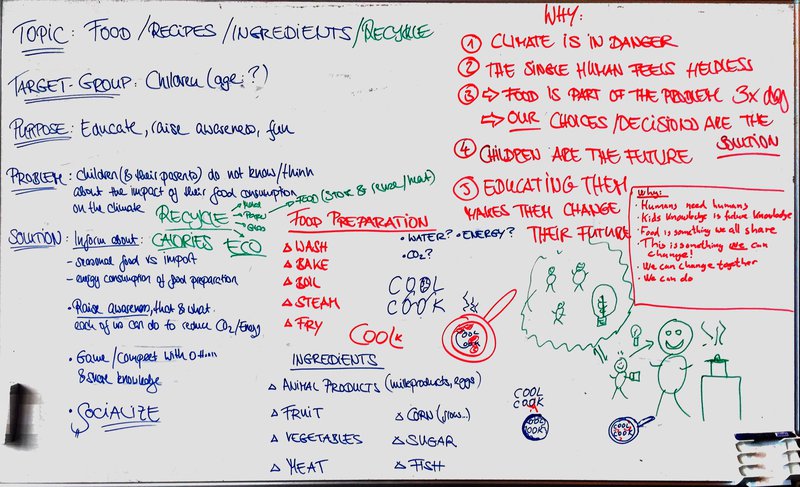 TOPIC: FOOD/RECIPES/INGREDIENTS/RECYCLE
TARGET-GROUP: Children (age: ?)
PURPOSE: Educate, raise awareness, fun
PROBLEM: Children (& their parents) do not know/think
about the impact of their food consumption
on the climate
SOLUTION: Inform about:
- seasonal food vs import
- energy consumption of food preparation
• Raise awareness, that & what
each of us can do to reduce CO2/Energy
• Game/Compete with others
& share knowledge
• SOCIALIZE
RECYCLE
FOOD (store & reuse/heat)
CALORIES ECO
FOOD PREPARATION
△ WASH
△ BAKE
△ BOIL
△ STEAM
△ FRY
• WATER? • ENERGY?
• CO2?
COOL
COOK
COOLK
COOL
COOK
INGREDIENTS
△ ANIMAL PRODUCTS (milkproducts, eggs)
△ FRUIT
△ VEGETABLES
△ MEAT
△ CORN
△ SUGAR
△ FISH
WHY:
① CLIMATE IS IN DANGER
② THE SINGLE HUMAN FEELS HELPLESS
③ ⇒ FOOD IS PART OF THE PROBLEM 3x day
⇒ OUR CHOICES/DECISIONS ARE THE
SOLUTION
④ CHILDREN ARE THE FUTURE
5 EDUCATING THEM
MAKES THEM CHANGE
THEIR FUTURE
Why:
• Humans need humans
• Kids knowledge is future knowledge
• Food is something we all share
• This is something we can
change!
• We can change together
• We can do
COOL
COOK
COOL
COOK
COOL
COOK